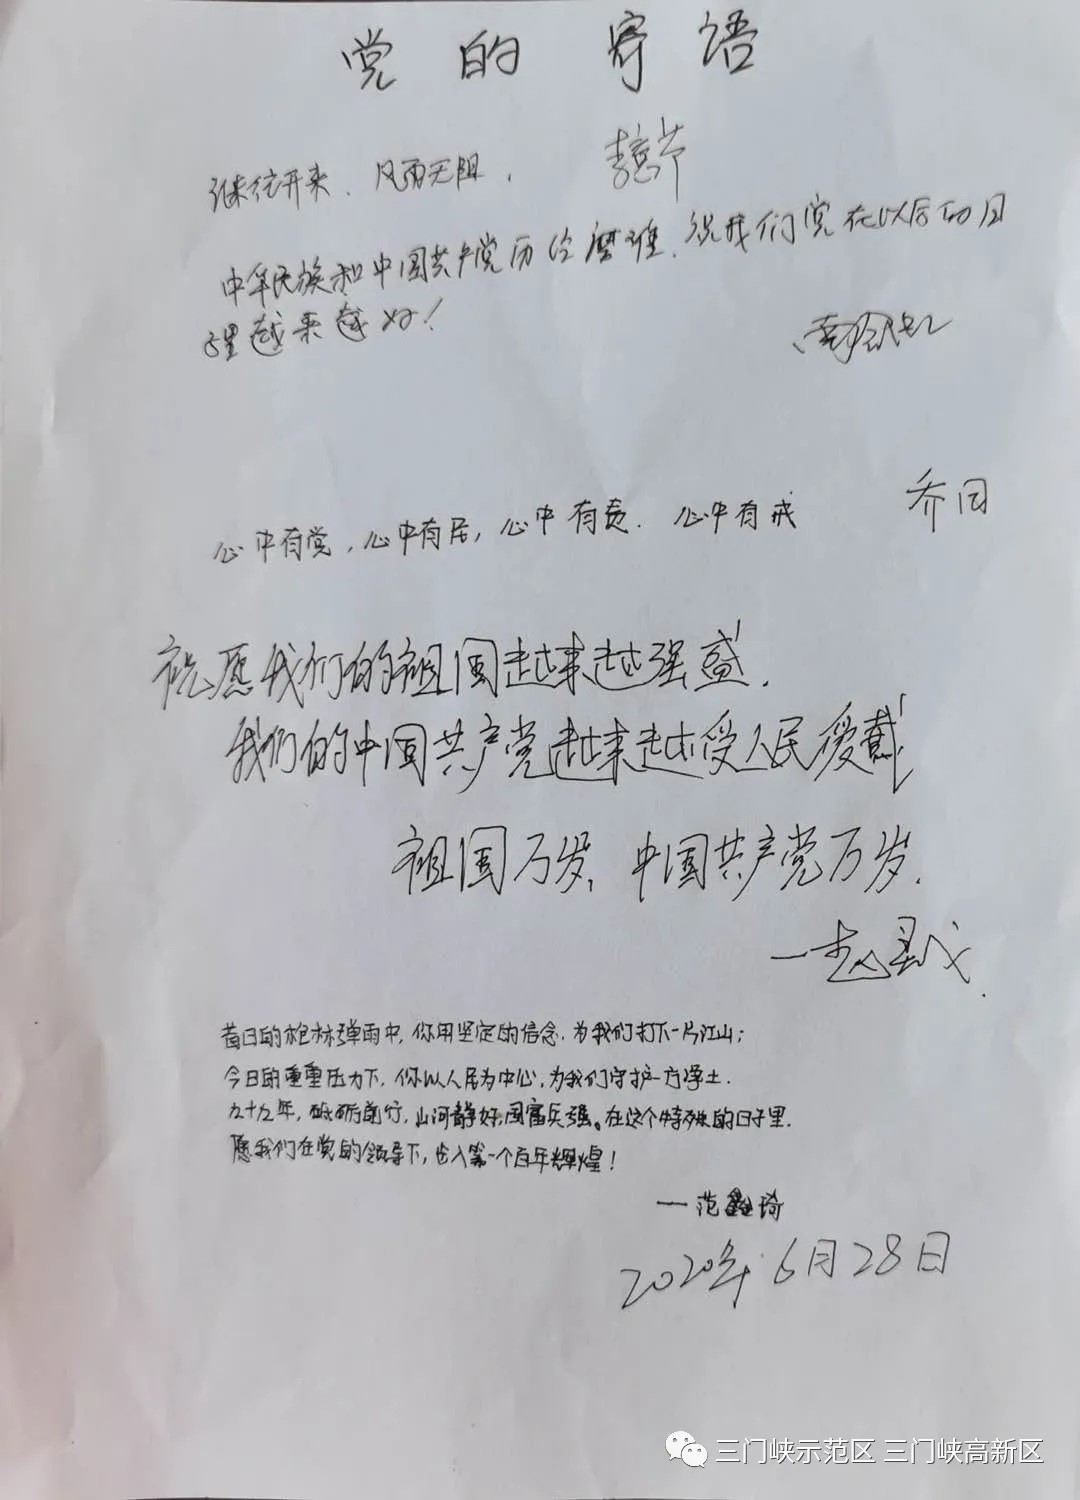 党的寄语
继往开来、风雨无阻。
中华民族和中国共产党历经磨难,祝我们党在以后的日
子里越来越好!
乔月
心中有党,心中有民,心中有责.心中有戒
祝愿我们的祖国越来越强盛.
我们的中国共产党越来越受人民爱戴!
祖国万岁,中国共产党万岁.
一赵
昔日的枪林弹雨中,你用坚定的信念,为我们打下一片江山;
今日的重重压力下,你以人民为中心,为我们守护一方净土.
九十九年,砥砺前行,山河静好,国富兵强。在这个特殊的日子里.
愿我们在党的领导下,步入第一个百年辉煌!
——范鑫琦
2020年6月28日
三门峡示范区 三门峡高新区